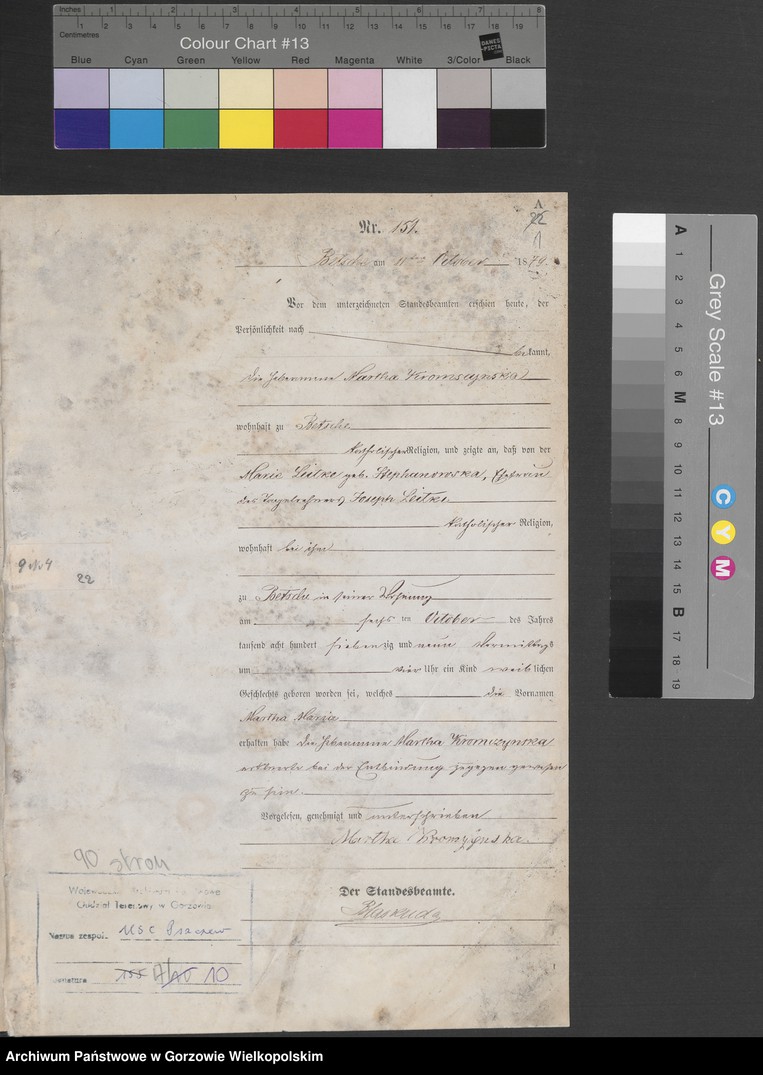 Inches 1 2 3 4 5 6 7 8
1 2 3 4 5 6 7 8 9 10 11 12 13 14 15 16 17 18 19
Centimetres
Colour Chart #13
DANES
PICTA
.COM
Blue Cyan Green Yellow Red Magenta White 3/Color Black
A
22
1
Nr. 151.
Betsche am 11ten October 1879.
Vor dem unterzeichneten Standesbeamten erschien heute, der
Persönlichkeit nach
bekannt,
die Hebeamme Martha Kromczynska
wohnhaft zu Betsche
katholischer Religion, und zeigte an, daß von der
Marie Leitke geb. Stephanowska, Ehefrau
des Tagelöhners Joseph Leitke
katholischer Religion,
wohnhaft bei ihm
zu Betsche in seiner Wohnung
am sechs ten October des Jahres
tausend acht hundert siebenzig und neun Vormittags
um vier Uhr ein Kind weiblichen
Geschlechts geboren worden sei, welches die Vornamen
Martha Maria
erhalten habe die Hebeamme Martha Kromczynska
erklärte bei der Entbindung zugegen gewesen
zu sein.
Vorgelesen, genehmigt und unterschrieben
Martha Kromzynska
Der Standesbeamte.
22
90 stron
Oddział Terenowy w Gorzowie
Nazwa zespoł. USC Pszczew
155 A/10 10
A 1 2 3 4 5 6 M 8 9 10 11 12 13 14 15 B 17 18 19
Grey Scale #13
C
Y
M
Archiwum Państwowe w Gorzowie Wielkopolskim